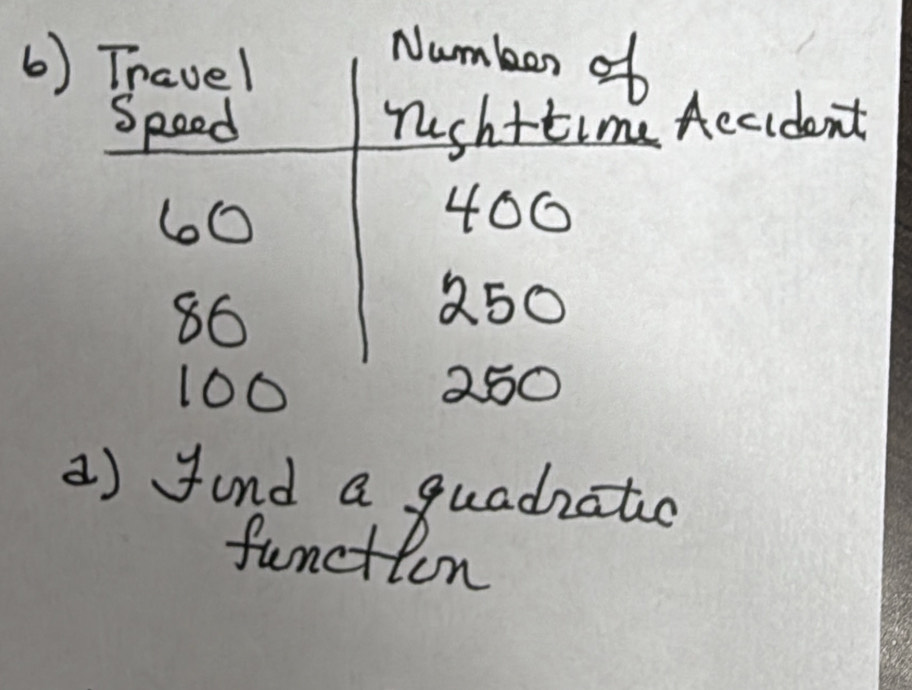 6) Travel Speed | Number of Nighttime Accident
60 | 400
80 | 250
100 | 250
a) Find a quadratic
function